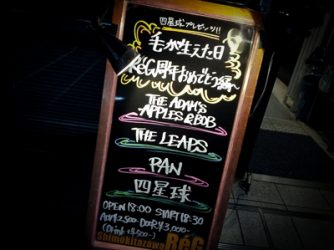 四星球プレゼンツ!!
毛が生えた日
THE ADAM'S
APPLES & BOB
THE LEAPS
PAN
四星球
OPEN 18:00 START 18:30
ADV 2,500- DOOR ¥3,000-
(Drink +¥500-)
Shimokitazawa ReG